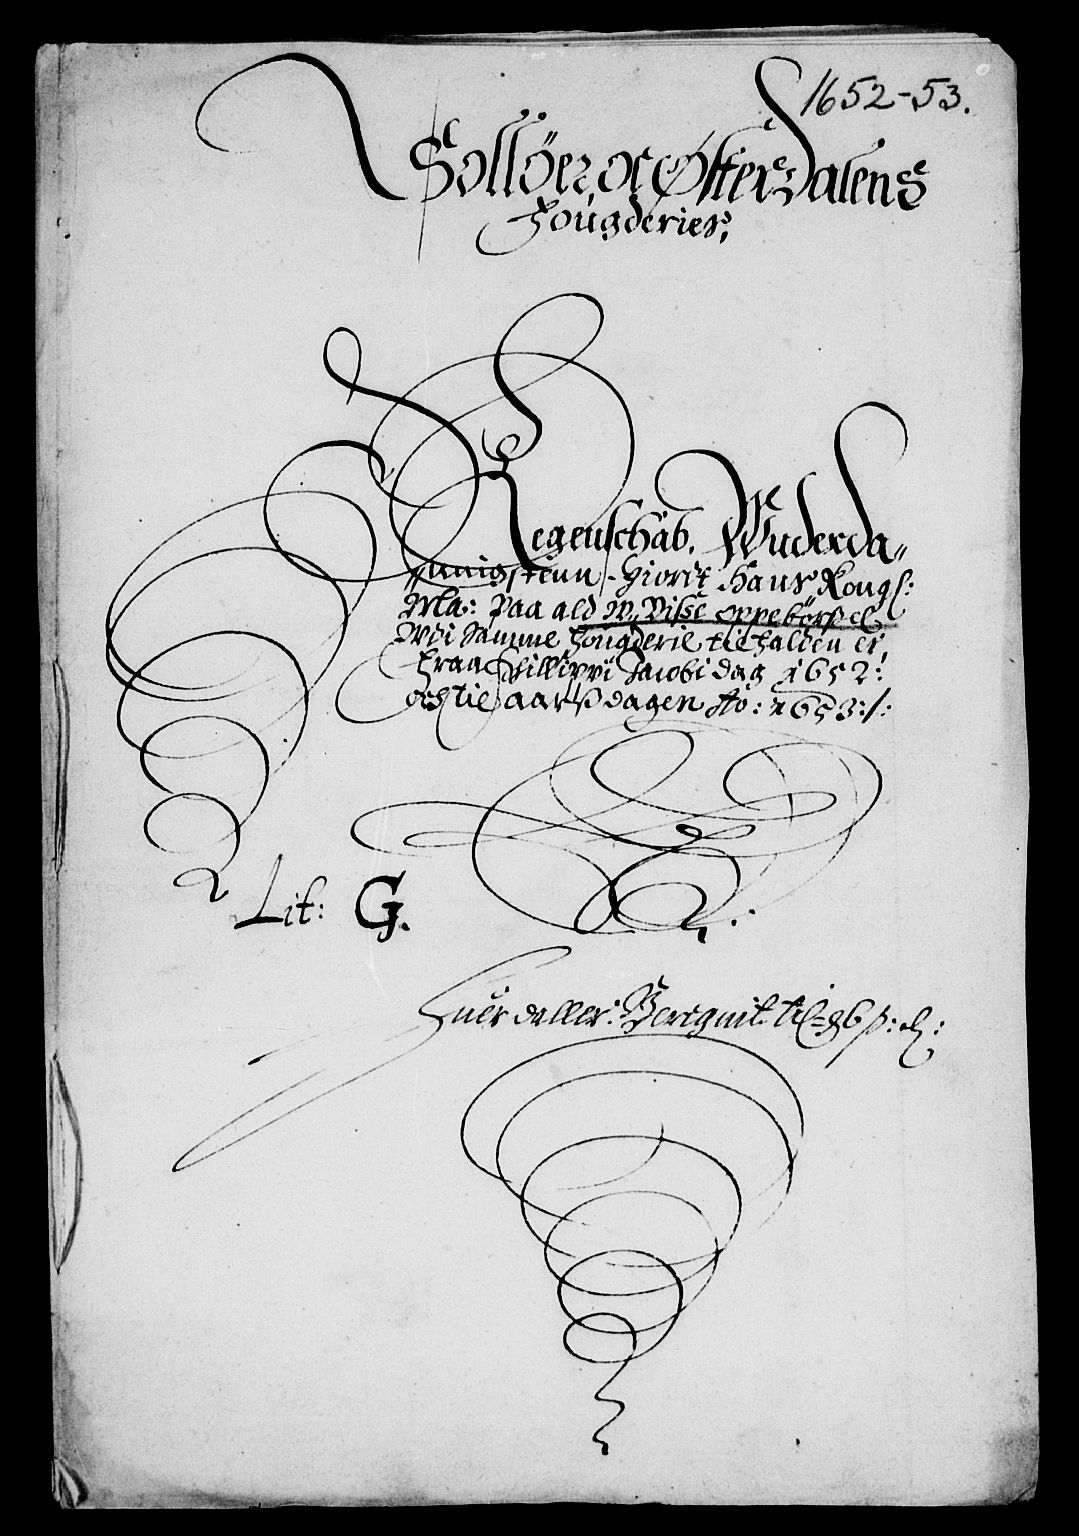 1652-53.
Sollöer oc Østerdalens
Fougderies,
Regenschab, Wnderda„
„nnigstenn, Giordt Hans Kongl:
Ma: Paa ald W, Visse oppebörsel
Wdi Samme Fougderie tilfalden er,
Fraa Phillippi Jacobi dag 1652:
och til aarsdagen Ao: 1653:/:
Lit: G.
Huer daller: Beregnit til 96 ß: d: